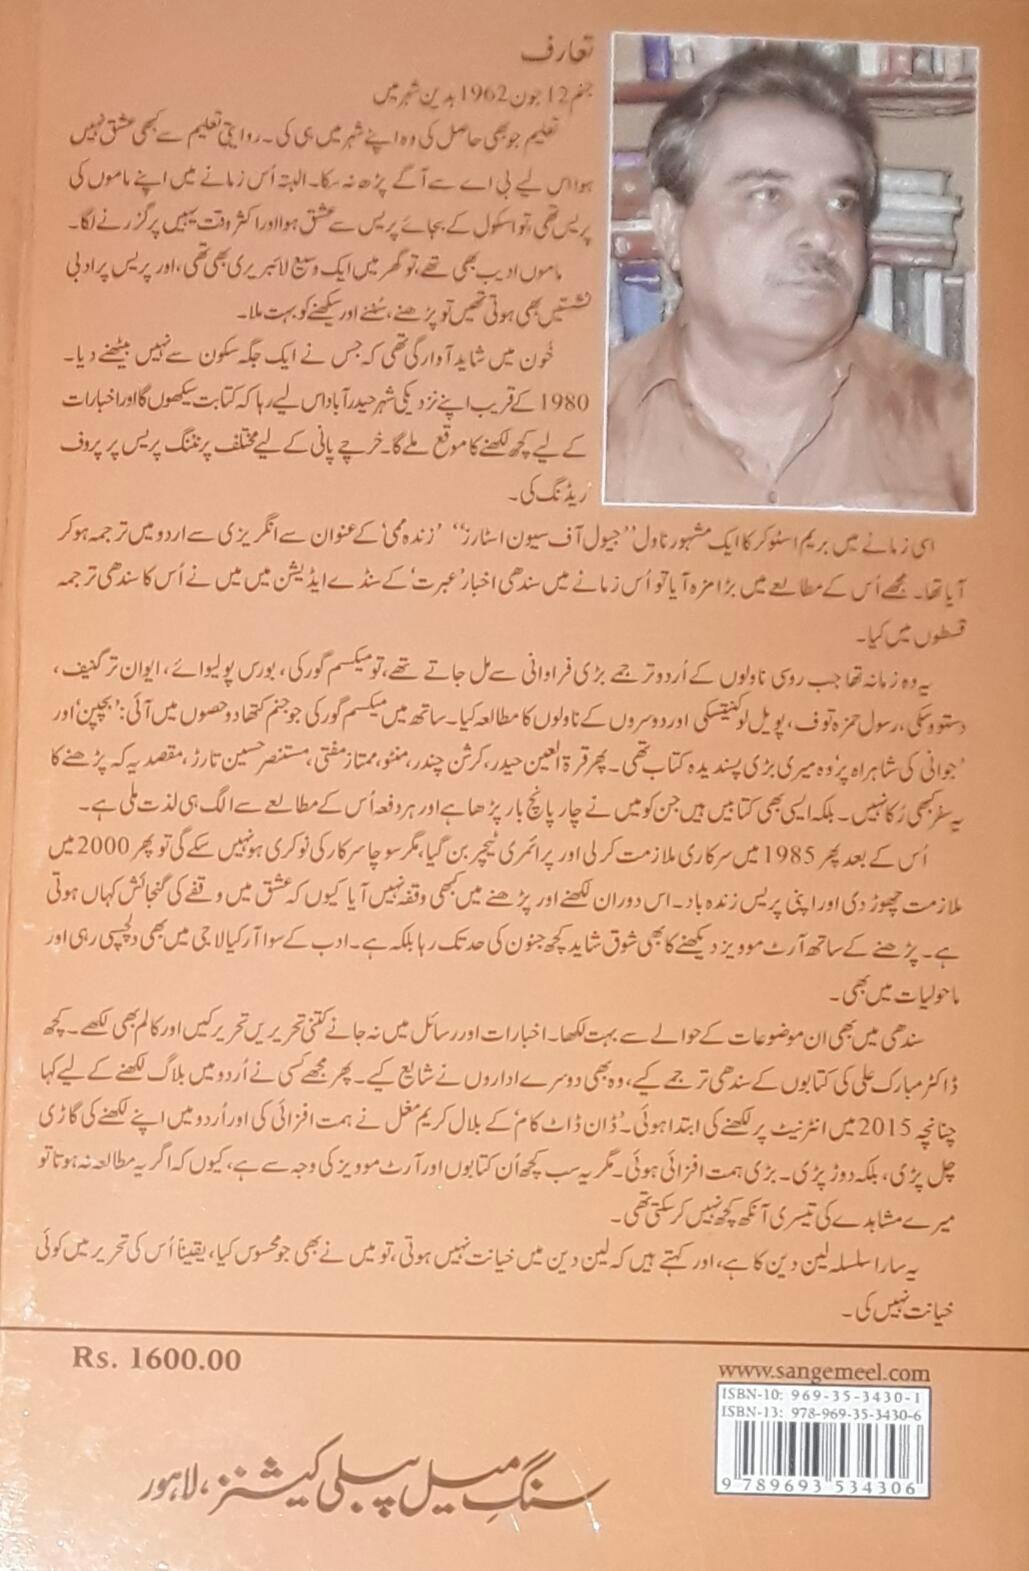 تعارف
جنم 12 جون 1962 بدین شہر میں
تعلیم جو بھی حاصل کی وہ اپنے شہر میں ہی کی۔ روایتی تعلیم سے کبھی عشق نہیں
ہوا اس لیے بی اے سے آگے پڑھ نہ سکا۔ البتہ اُس زمانے میں اپنے ماموں کی
پریس تھی، تو اسکول کے بجائے پریس سے عشق ہوا اور اکثر وقت یہیں پر گزرنے لگا۔
ماموں ادیب بھی تھے، تو گھر میں ایک وسیع لائبریری بھی تھی، اور پریس پر ادبی
نشستیں بھی ہوتی تھیں تو پڑھنے، سُننے اور سیکھنے کو بہت ملا۔
خُون میں شاید آوارگی تھی کہ جس نے ایک جگہ سکون سے نہیں بیٹھنے دیا۔
1980 کے قریب اپنے نزدیکی شہر حیدرآباد اس لیے رہا کہ کتابت سیکھوں گا اور اخبارات
کے لیے کچھ لکھنے کا موقع ملے گا۔ خرچے پانی کے لیے مختلف پرنٹنگ پریس پر پروف
ریڈنگ کی۔
اسی زمانے میں بریم اسٹوکر کا ایک مشہور ناول ”جیول آف سیون اسٹارز“ ’زندہ ممی‘ کے عنوان سے انگریزی سے اردو میں ترجمہ ہو کر
آیا تھا۔ مجھے اُس کے مطالعے میں بڑا مزہ آیا تو اُس زمانے میں سندھی اخبار ’عبرت‘ کے سنڈے ایڈیشن میں میں نے اُس کا سندھی ترجمہ
قسطوں میں کیا۔
یہ وہ زمانہ تھا جب روسی ناولوں کے اُردو ترجمے بڑی فراوانی سے مل جاتے تھے، تو میکسم گورکی، بورس پولیوائے، ایوان ترگنیف،
دستووسکی، رسول حمزہ توف، پویل لوکنیتسکی اور دوسروں کے ناولوں کا مطالعہ کیا۔ ساتھ میں میکسم گورکی کی جو جنم کتھا دو حصوں میں آئی: ’بچپن‘ اور
’جوانی کی شاہراہ پر‘ وہ میری بڑی پسندیدہ کتاب تھی۔ پھر قرۃ العین حیدر، کرشن چندر، منٹو، ممتاز مفتی، مستنصر حسین تارڑ، مقصد یہ کہ پڑھنے کا
یہ سفر کبھی رُکا نہیں۔ بلکہ ایسی بھی کتابیں ہیں جن کو میں نے چار پانچ بار پڑھا ہے اور ہر دفعہ اُس کے مطالعے سے الگ ہی لذت ملی ہے۔
اُس کے بعد پھر 1985 میں سرکاری ملازمت کر لی اور پرائمری ٹیچر بن گیا، مگر سوچا سرکار کی نوکری ہو نہیں سکے گی تو پھر 2000 میں
ملازمت چھوڑ دی اور اپنی پریس زندہ باد۔ اس دوران لکھنے اور پڑھنے میں کبھی وقفہ نہیں آیا کیوں کہ عشق میں وقفے کی گنجائش کہاں ہوتی
ہے۔ پڑھنے کے ساتھ آرٹ موویز دیکھنے کا بھی شوق شاید کچھ جنون کی حد تک رہا بلکہ ہے۔ ادب کے سوا آرکیالاجی میں بھی دلچسپی رہی اور
ماحولیات میں بھی۔
سندھی میں بھی ان موضوعات کے حوالے سے بہت لکھا۔ اخبارات اور رسائل میں نہ جانے کتنی تحریریں تحریر کیں اور کالم بھی لکھے۔ کچھ
ڈاکٹر مبارک علی کی کتابوں کے سندھی ترجمے کیے، وہ بھی دوسرے اداروں نے شایع کیے۔ پھر مجھے کسی نے اُردو میں بلاگ لکھنے کے لیے کہا
چنانچہ 2015 میں انٹرنیٹ پر لکھنے کی ابتدا ہوئی۔ ’ڈان ڈاٹ کام‘ کے بلال کریم مغل نے ہمت افزائی کی اور اُردو میں اپنے لکھنے کی گاڑی
چل پڑی، بلکہ دوڑ پڑی۔ بڑی ہمت افزائی ہوئی۔ مگر یہ سب کچھ اُن کتابوں اور آرٹ موویز کی وجہ سے ہے، کیوں کہ اگر یہ مطالعہ نہ ہوتا تو
میرے مشاہدے کی تیسری آنکھ کچھ نہیں کر سکتی تھی۔
یہ سارا سلسلہ لین دین کا ہے، اور کہتے ہیں کہ لین دین میں خیانت نہیں ہوتی، تو میں نے بھی جو محسوس کیا، یقیناً اُس کی تحریر میں کوئی
خیانت نہیں کی۔
Rs. 1600.00
www.sangemeel.com
ISBN-10: 969-35-3430-1
ISBN-13: 978-969-35-3430-6
9 789693 534306
سنگِ میل پبلی کیشنز، لاہور